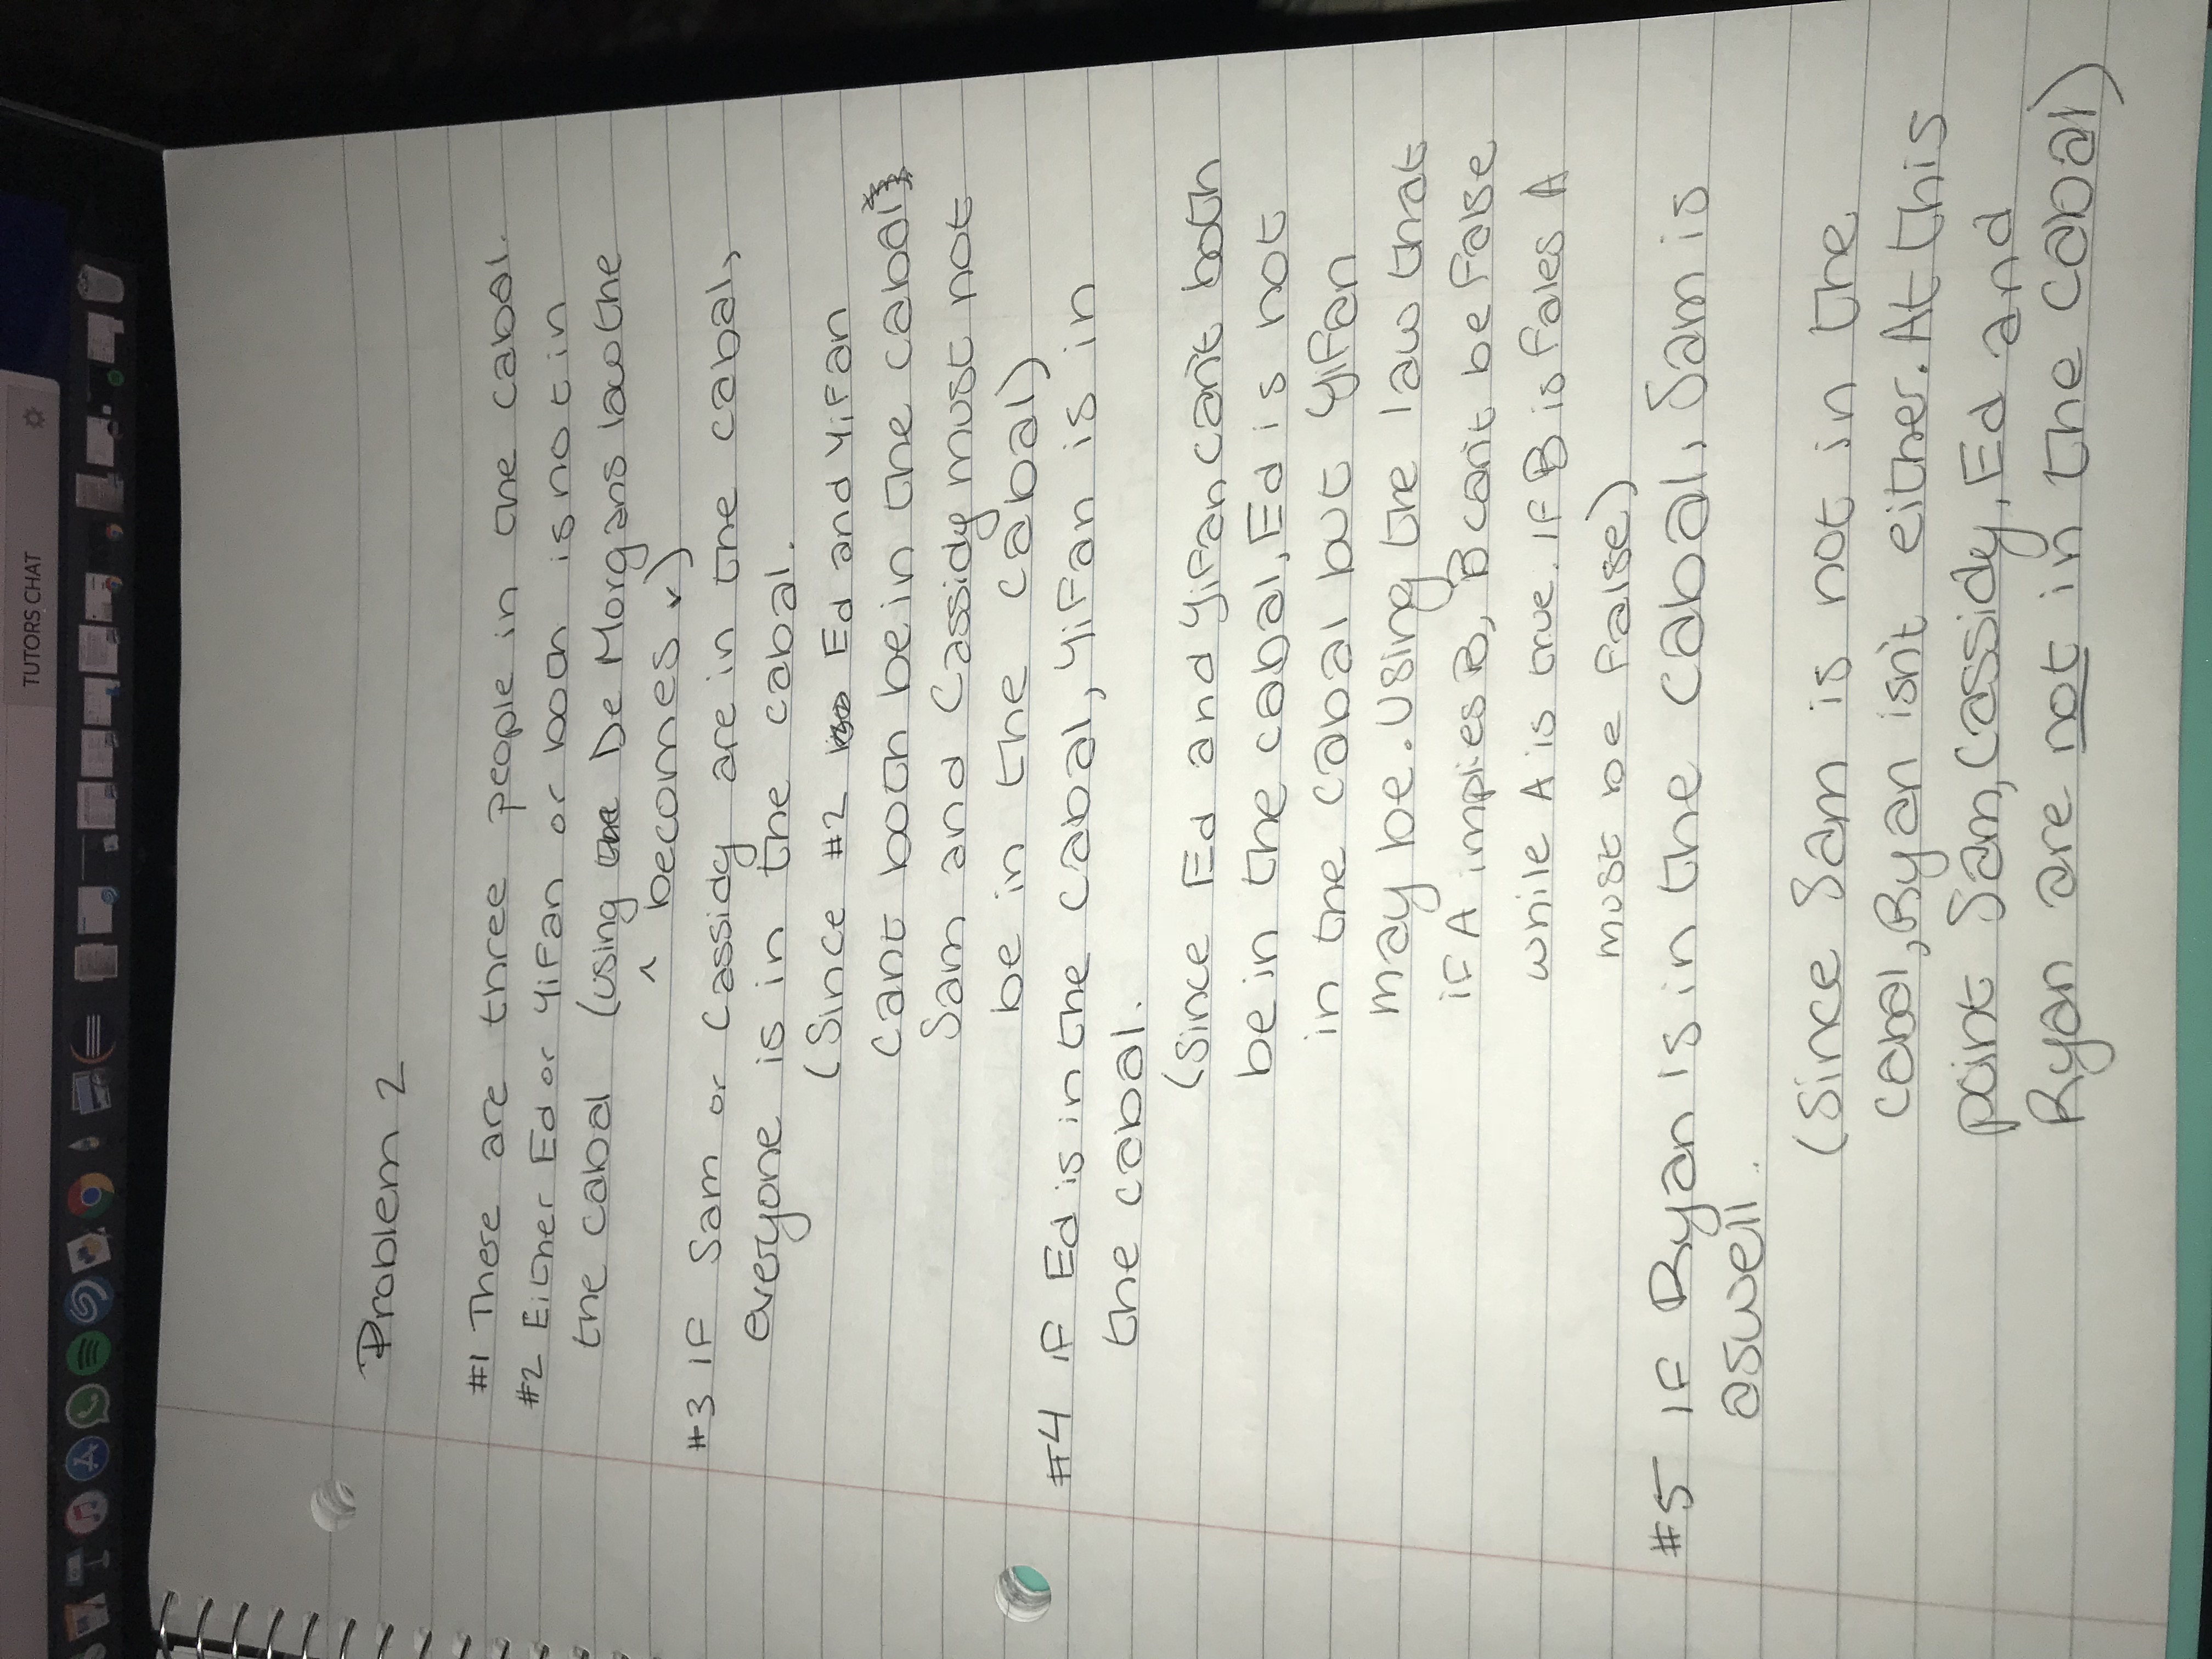 TUTORS CHAT
Problem 2
#1 These are three people in the cabal.
#2 Either Ed or Yifan or both is not in
the cabal (using De Morgans law the
^ becomes v)
#3 IF Sam or Cassidy are in the cabal,
everyone is in the cabal.
(Since #2 Ed and Yifan
cant both be in the cabal
Sam and Cassidy must not
be in the cabal)
#4 if Ed is in the cabal, Yifan is in
the cabal.
(since Ed and Yifan can't both
be in the cabal, Ed is not
in the cabal but Yifan
may be. Using the law that
if A implies B, B can't be false
while A is true. IF B is fales A
must be false)
#5 IF Ryan is in the cabal, Sam is
aswell.
(Since Sam is not in the
cabal, Ryan isn't either. At this
point Sam, Cassidy, Ed and
Ryan are not in the cabal)